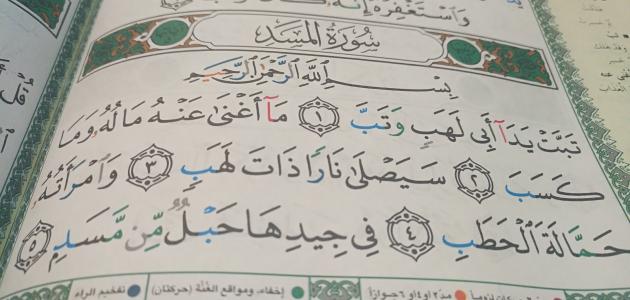 وَاسْتَغْفِرْهُ إِنَّهُ كَانَ
سُورَةُ الْمَسَدِ
بِسْمِ اللَّهِ الرَّحْمَٰنِ الرَّحِيمِ
تَبَّتْ يَدَآ أَبِي لَهَبٍ وَتَبَّ ١ مَآ أَغْنَىٰ عَنْهُ مَالُهُۥ وَمَا
كَسَبَ ٢ سَيَصْلَىٰ نَارًا ذَاتَ لَهَبٍ ٣ وَٱمْرَأَتُهُۥ
حَمَّالَةَ ٱلْحَطَبِ ٤ فِي جِيدِهَا حَبْلٌ مِّن مَّسَدٍ ٥
مدّ ٢ او ٤ او ٦ جوازاً
إخفاء، ومواقع الغُنَّة (حركتان)
تفخيم الراء